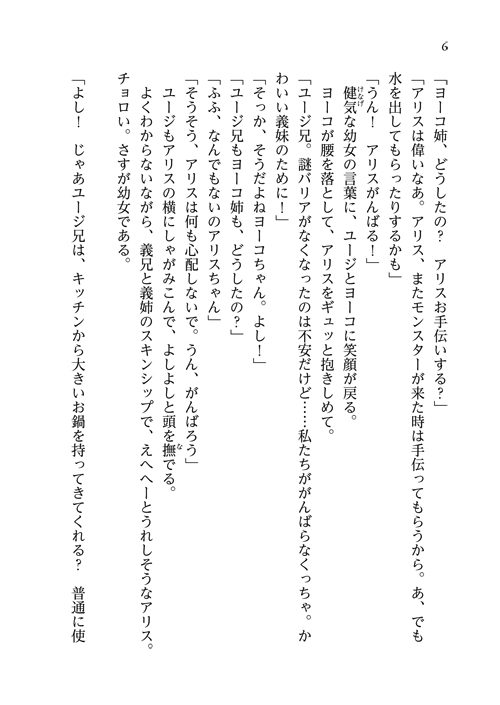 6
「ヨーコ姉、どうしたの？　アリスお手伝いする？」
「アリスは偉いなあ。アリス、またモンスターが来た時は手伝ってもらうから。あ、でも
水を出してもらったりするかも」
「うん！　アリスがんばる！」
健気な幼女の言葉に、ユージとヨーコに笑顔が戻る。
ヨーコが腰を落として、アリスをギュッと抱きしめて。
「ユージ兄。謎バリアがなくなったのは不安だけど……私たちががんばらなくっちゃ。か
わいい義妹のために！」
「そっか、そうだよねヨーコちゃん。よし！」
「ユージ兄もヨーコ姉も、どうしたの？」
「ふふ、なんでもないのアリスちゃん」
「そうそう、アリスは何も心配しないで。うん、がんばろう」
ユージもアリスの横にしゃがみこんで、よしよしと頭を撫でる。
よくわからないながら、義兄と義姉のスキンシップで、えへへーとうれしそうなアリス。
チョロい。さすが幼女である。
「よし！　じゃあユージ兄は、キッチンから大きいお鍋を持ってきてくれる？　普通に使